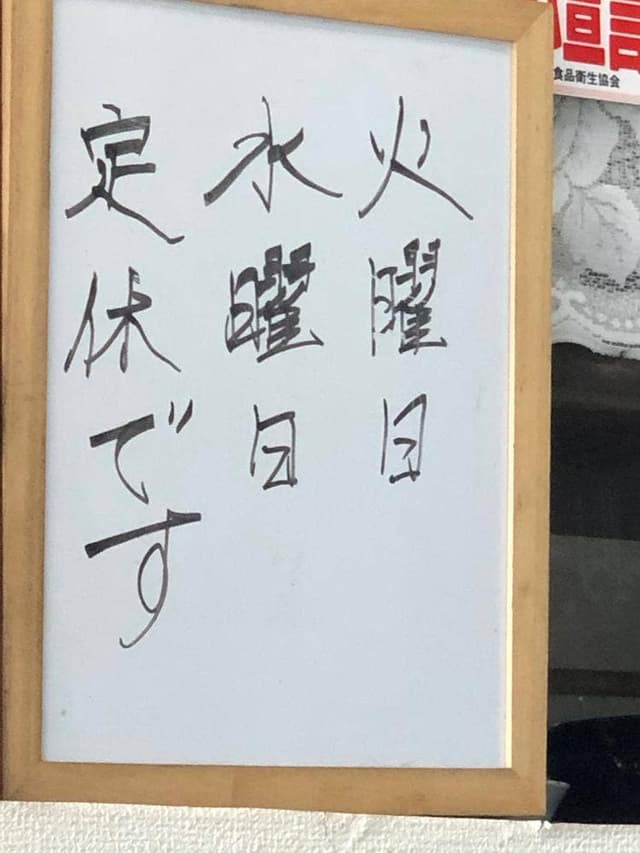 火曜日
水曜日
定休です
食品衛生協会